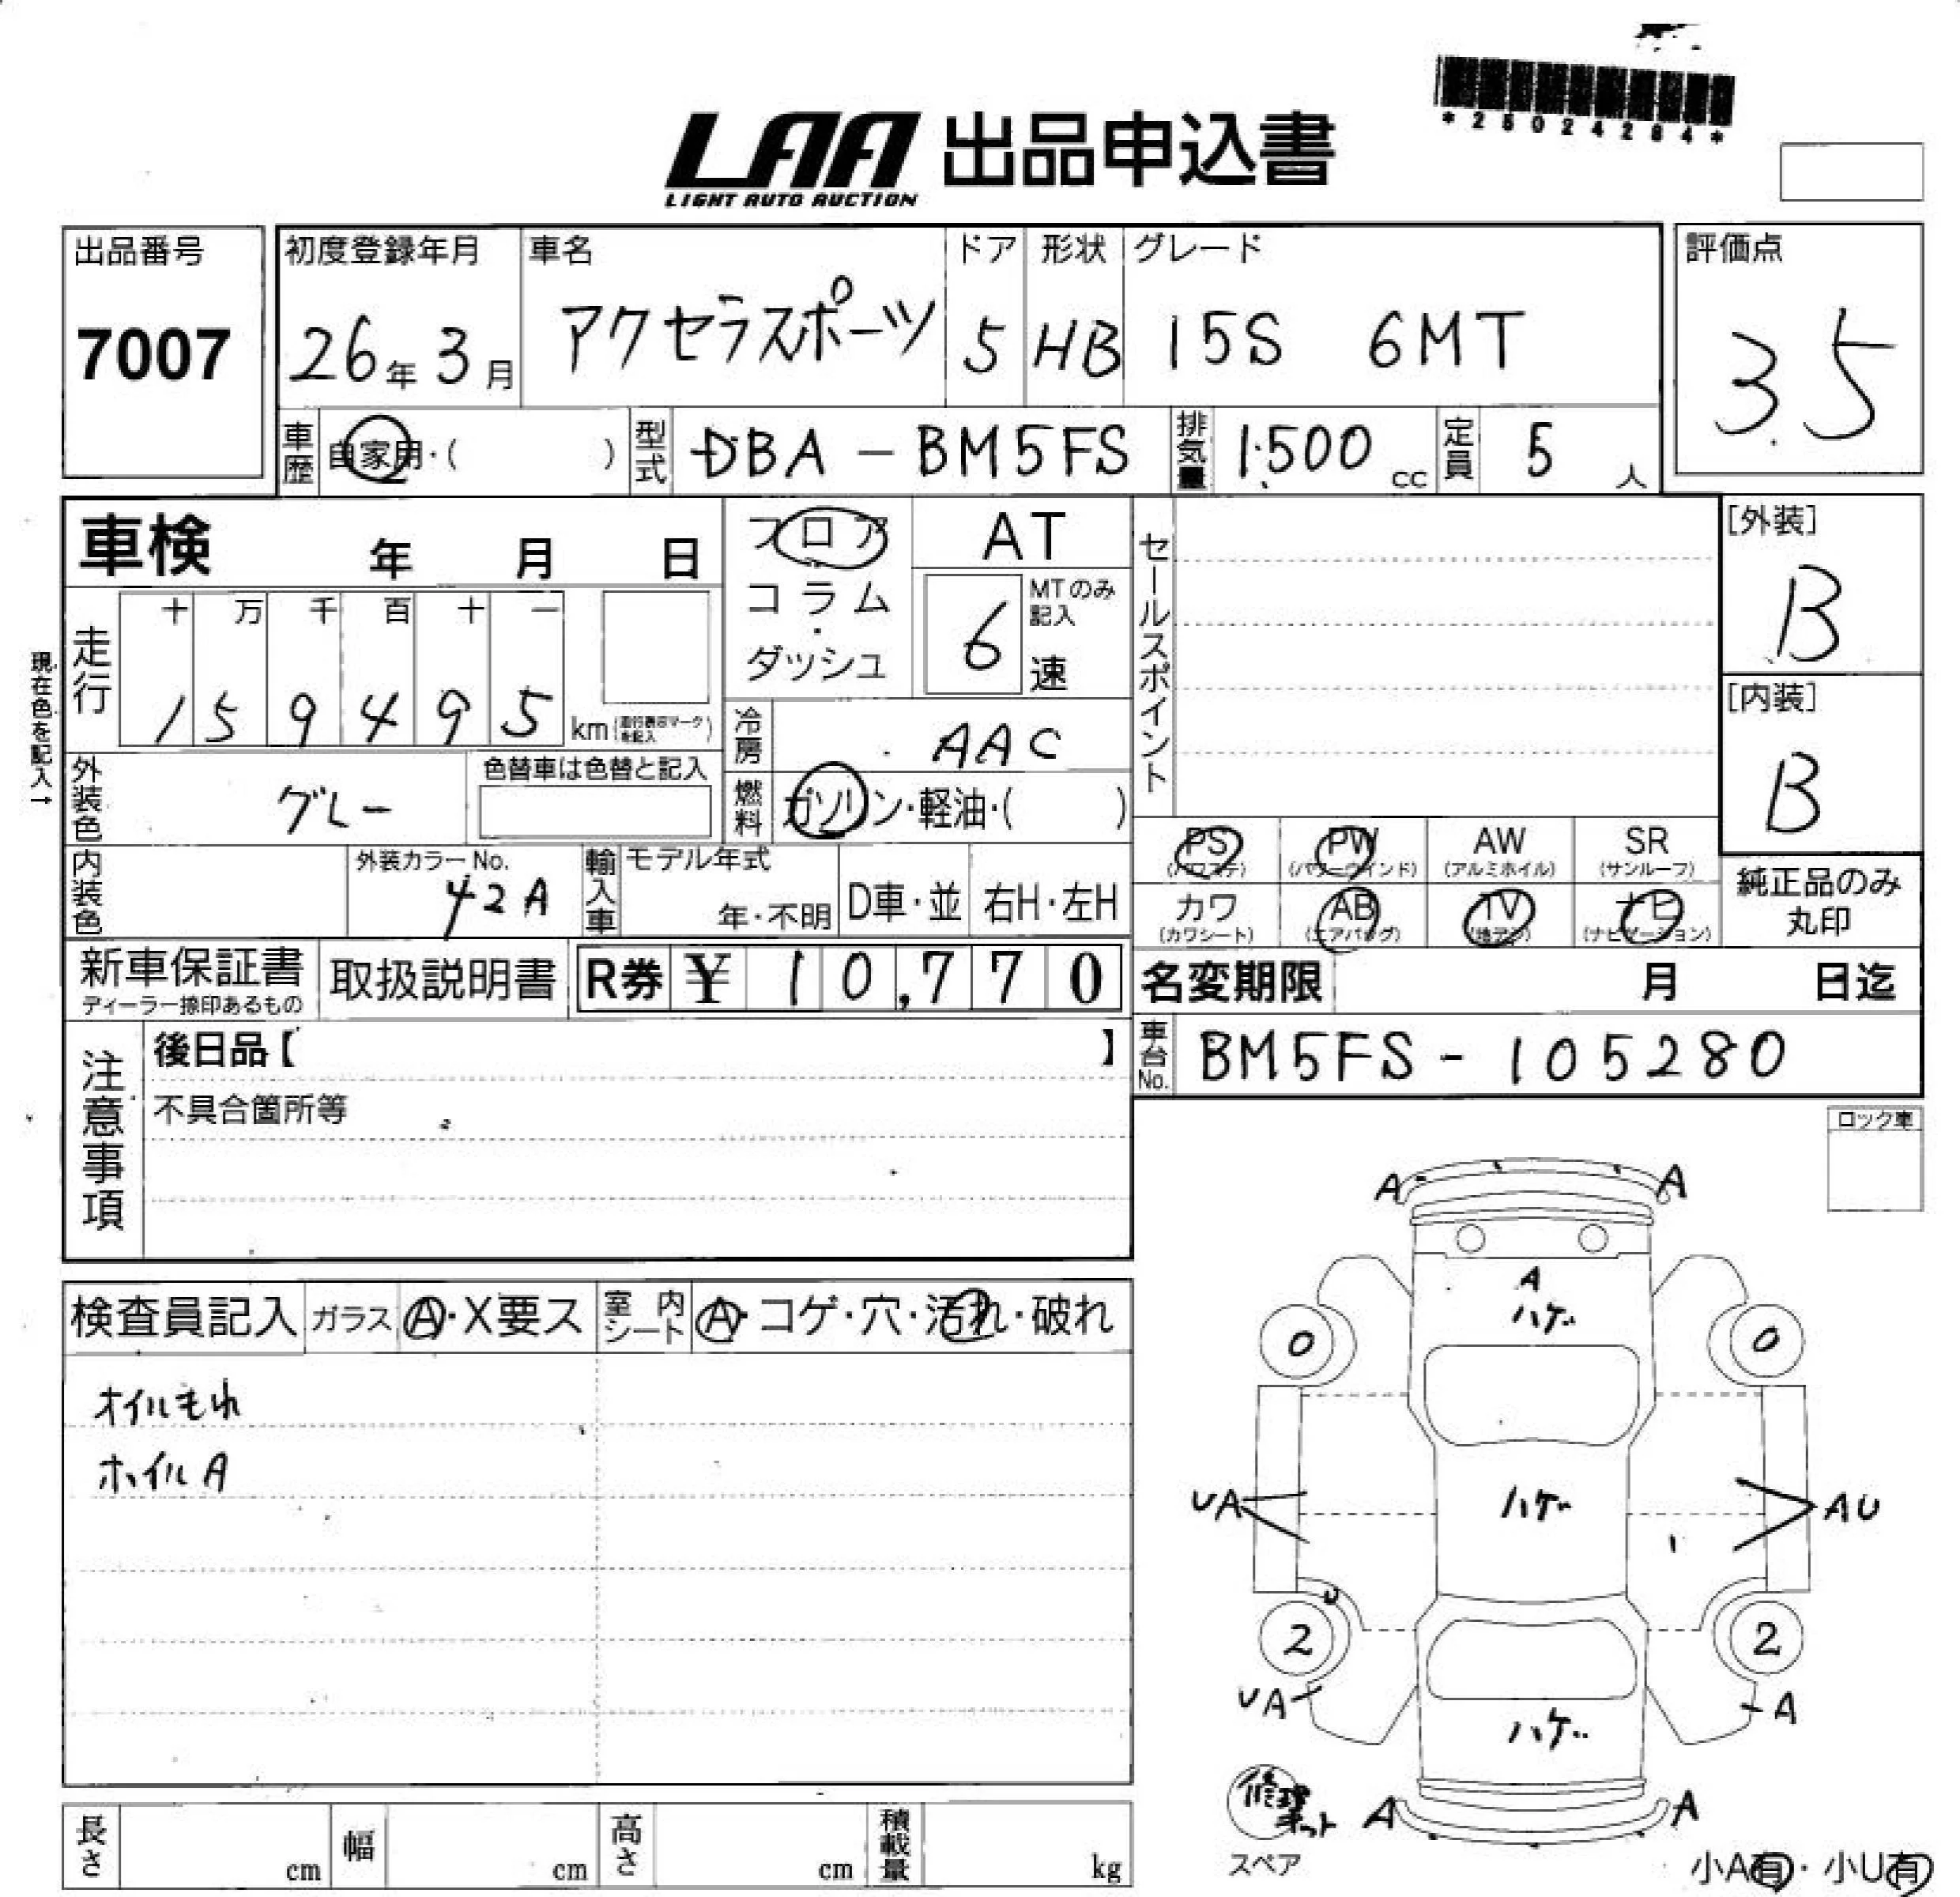 *28024284*
LAA 出品申込書
LIGHT AUTO AUCTION
出品番号
7007
初度登録年月
26年3月
車名
アクセラスポーツ
ドア
5
形状
HB
グレード
15S 6MT
評価点
3.5
車歴 自家用・( )
型式 DBA-BM5FS
排気量 1.500 cc
定員 5 人
車検 年 月 日
フロア
コラム
・
ダッシュ
AT
6 MTのみ記入
速
セールスポイント
[外装]
B
[内装]
B
現在色を記入→
走行
十 万 千 百 十 一
1 5 9 4 9 5 km(走行表示マークを記入)
冷房 AAC
外装色 グレー
色替車は色替と記入
燃料 ガソリン・軽油・( )
PS (パワステ)
PW (パワーウインド)
AW (アルミホイル)
SR (サンルーフ)
カワ (カワシート)
AB (エアバッグ)
TV (地デジ)
ナビ (ナビゲーション)
純正品のみ
丸印
内装色
外装カラーNo.
42A
輸入車
モデル年式
年・不明
D車・並
右H・左H
新車保証書
ディーラー捺印あるもの
取扱説明書
R券 ¥ 10,770
名変期限 月 日迄
車台No. BM5FS-105280
注意事項
後日品【 】
不具合箇所等
ロック車
検査員記入
ガラス A・X要ス
室内シート A・コゲ・穴・汚れ・破れ
オイルもれ
ホイルA
A A
A
ハゲ
0 0
UA ハゲ AU
U
2 2
UA A
ハゲ
修理キット
スペア
A A
小A有・小U有
長さ cm
幅 cm
高さ cm
積載量 kg